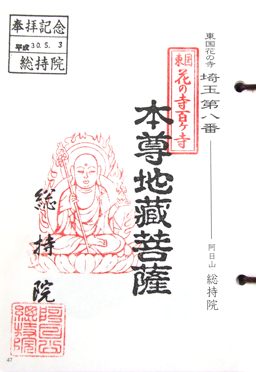 東国花の寺
埼玉 第八番
阿日山 総持院
東国
花の寺百ヶ寺
本尊地蔵菩薩
総持院
奉拝記念
平成 30. 5. 3
総持院
47